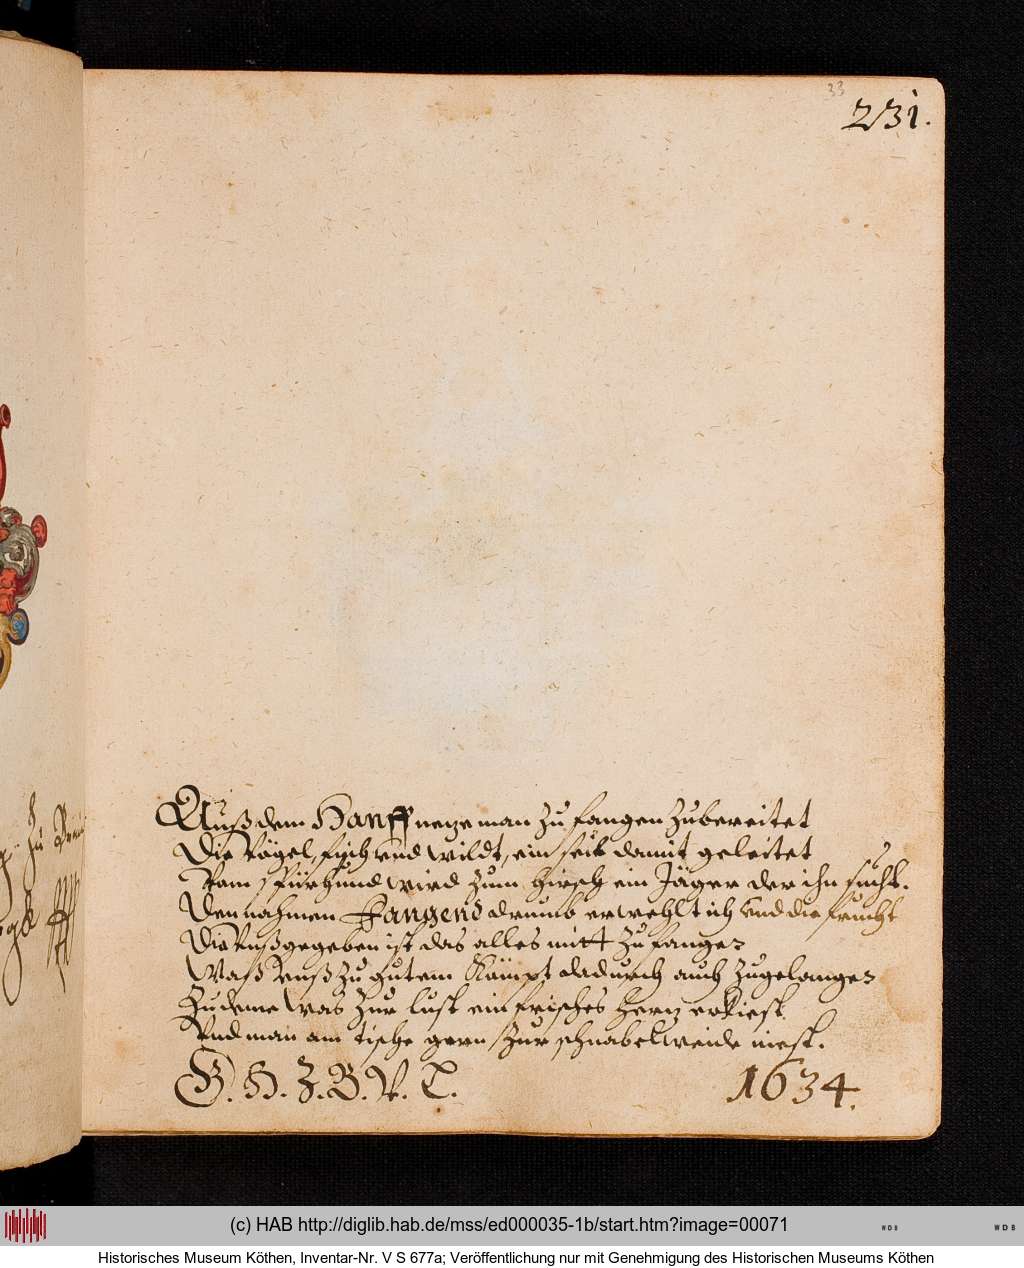 33
231.
Auß dem Hanff netze man zu fangen zubereitet
Die Vögel, fisch und wildt, ein seil damit geleitet
Vom spürhund wird zum hirsch ein Jäger der ihn sucht.
Den nahmen Fangend drumb erwehlt ich und die frucht
Die Unß gegeben ist das alles mitt zu fangen
Waß Unß zu gutem Kömpt dadurch auch zugelangen
Zu deme was zur lust ein frisches hertz erkiest
Und man am tische gern zur schnabelweide niest.
G. H. Z. B. V. L.
1634.
zu
(c) HAB http://diglib.hab.de/mss/ed000035-1b/start.htm?image=00071
WDB
WDB
Historisches Museum Köthen, Inventar-Nr. V S 677a; Veröffentlichung nur mit Genehmigung des Historischen Museums Köthen